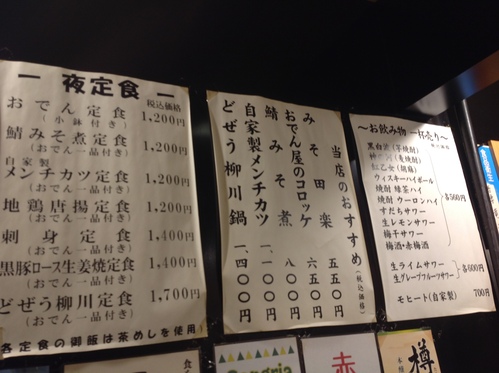 一 夜定食 一
税込価格
おでん定食 1,200円
(小鉢付き)
鯖みそ煮定食 1,200円
(おでん一品付き)
自家製
メンチカツ定食 1,200円
(おでん一品付き)
地鶏唐揚定食 1,200円
(おでん一品付き)
刺身定食 1,400円
(おでん一品付き)
黒豚ロース生姜焼定食 1,400円
(おでん一品付き)
どぜう柳川定食 1,700円
(おでん一品付き)
各定食の御飯は茶めしを使用
当店のおすすめ(税込価格)
みそ田楽 五五〇円
おでん屋のコロッケ 六五〇円
鯖みそ煮 八〇〇円
自家製メンチカツ 一、一〇〇円
どぜう柳川鍋 一、四〇〇円
～お飲み物 一杯売り～
(芋焼酎)
(麦焼酎)
紅乙女(胡麻)
ウィスキーハイボール
焼酎 緑茶ハイ
焼酎 ウーロンハイ
すだちサワー
生レモンサワー
梅干サワー
梅酒・赤梅酒
各500円
生ライムサワー
生グレープフルーツサワー
各600円
モヒート(自家製) 700円
Sangria
赤
樽